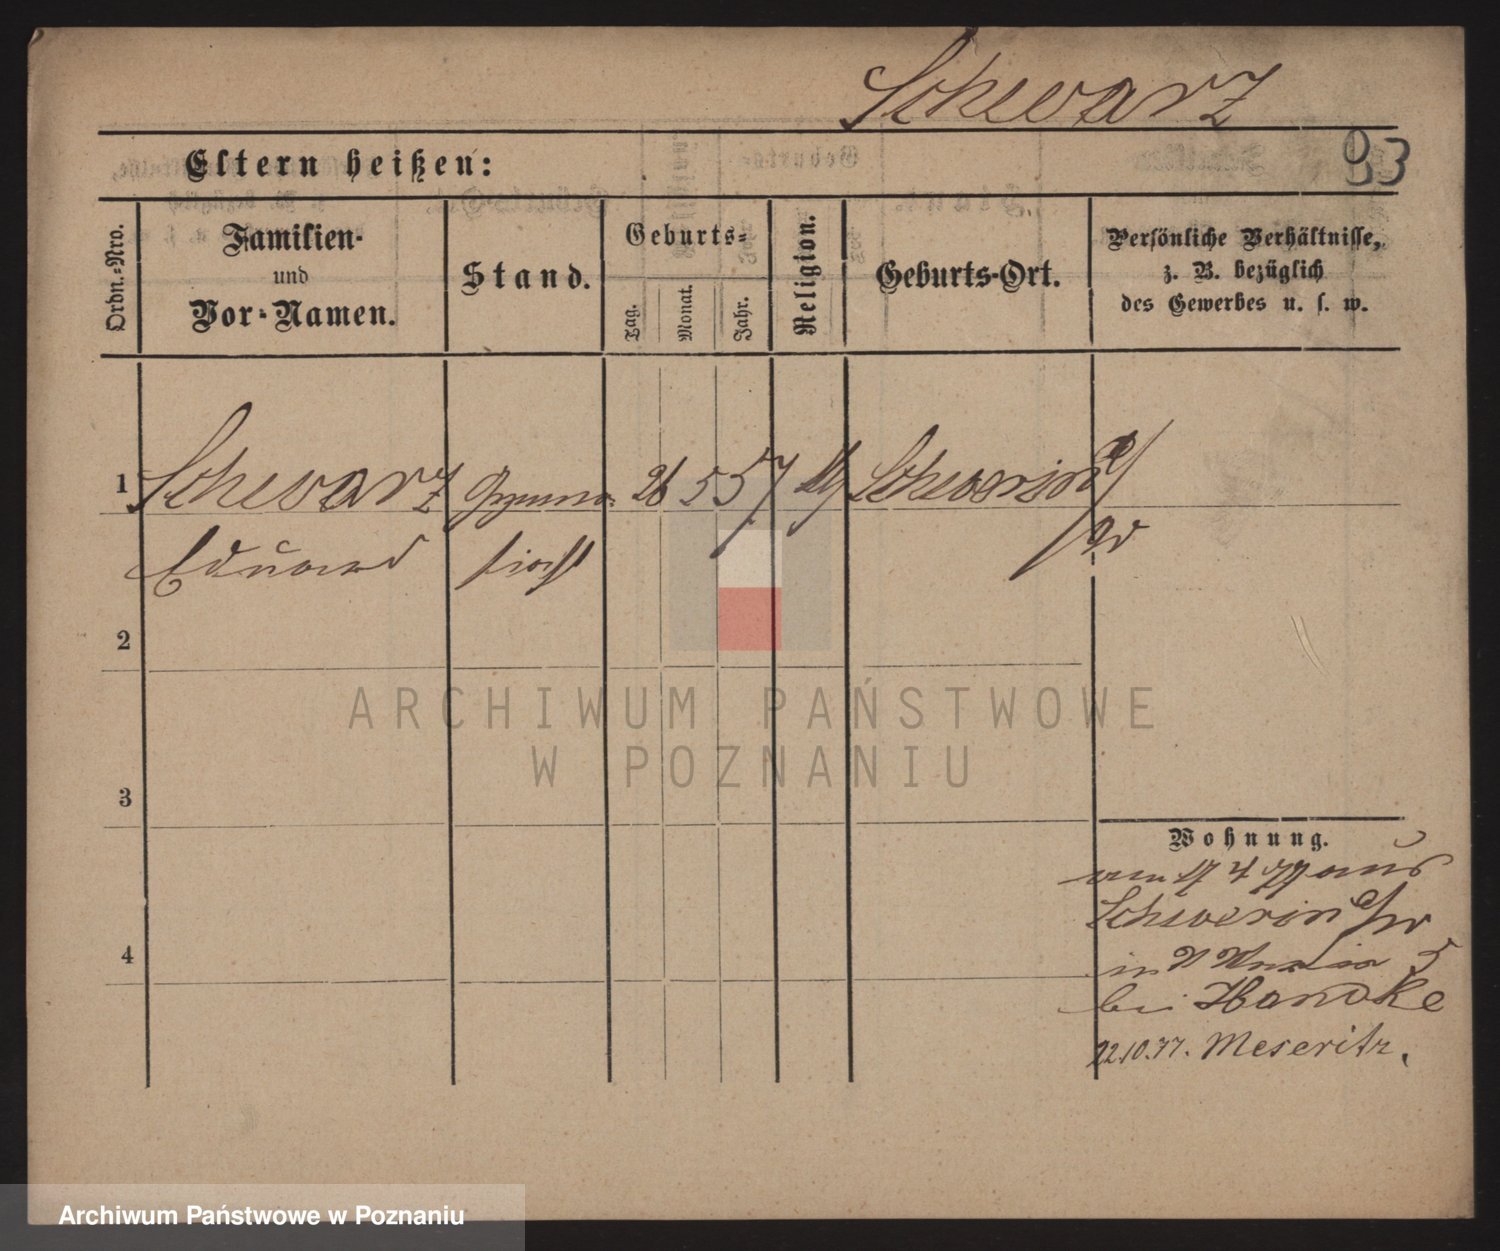 Schwarz
83
Eltern heißen:
Ordn.-Nro.
Familien-
und
Vor-Namen.
Stand.
Geburts-
Tag.
Monat.
Jahr.
Religion.
Geburts-Ort.
Persönliche Verhältnisse,
z. B. bezüglich
des Gewerbes u. s. w.
1 Schwarz Gymna- 26 5 57 Schwerin a/
Eduard siast W
2
3
4
Wohnung.
am 17 4 77 aus
Schwerin a/W
in 5
bei Handke
22.10.77. Meseritz.
ARCHIWUM PAŃSTWOWE
W POZNANIU
Archiwum Państwowe w Poznaniu